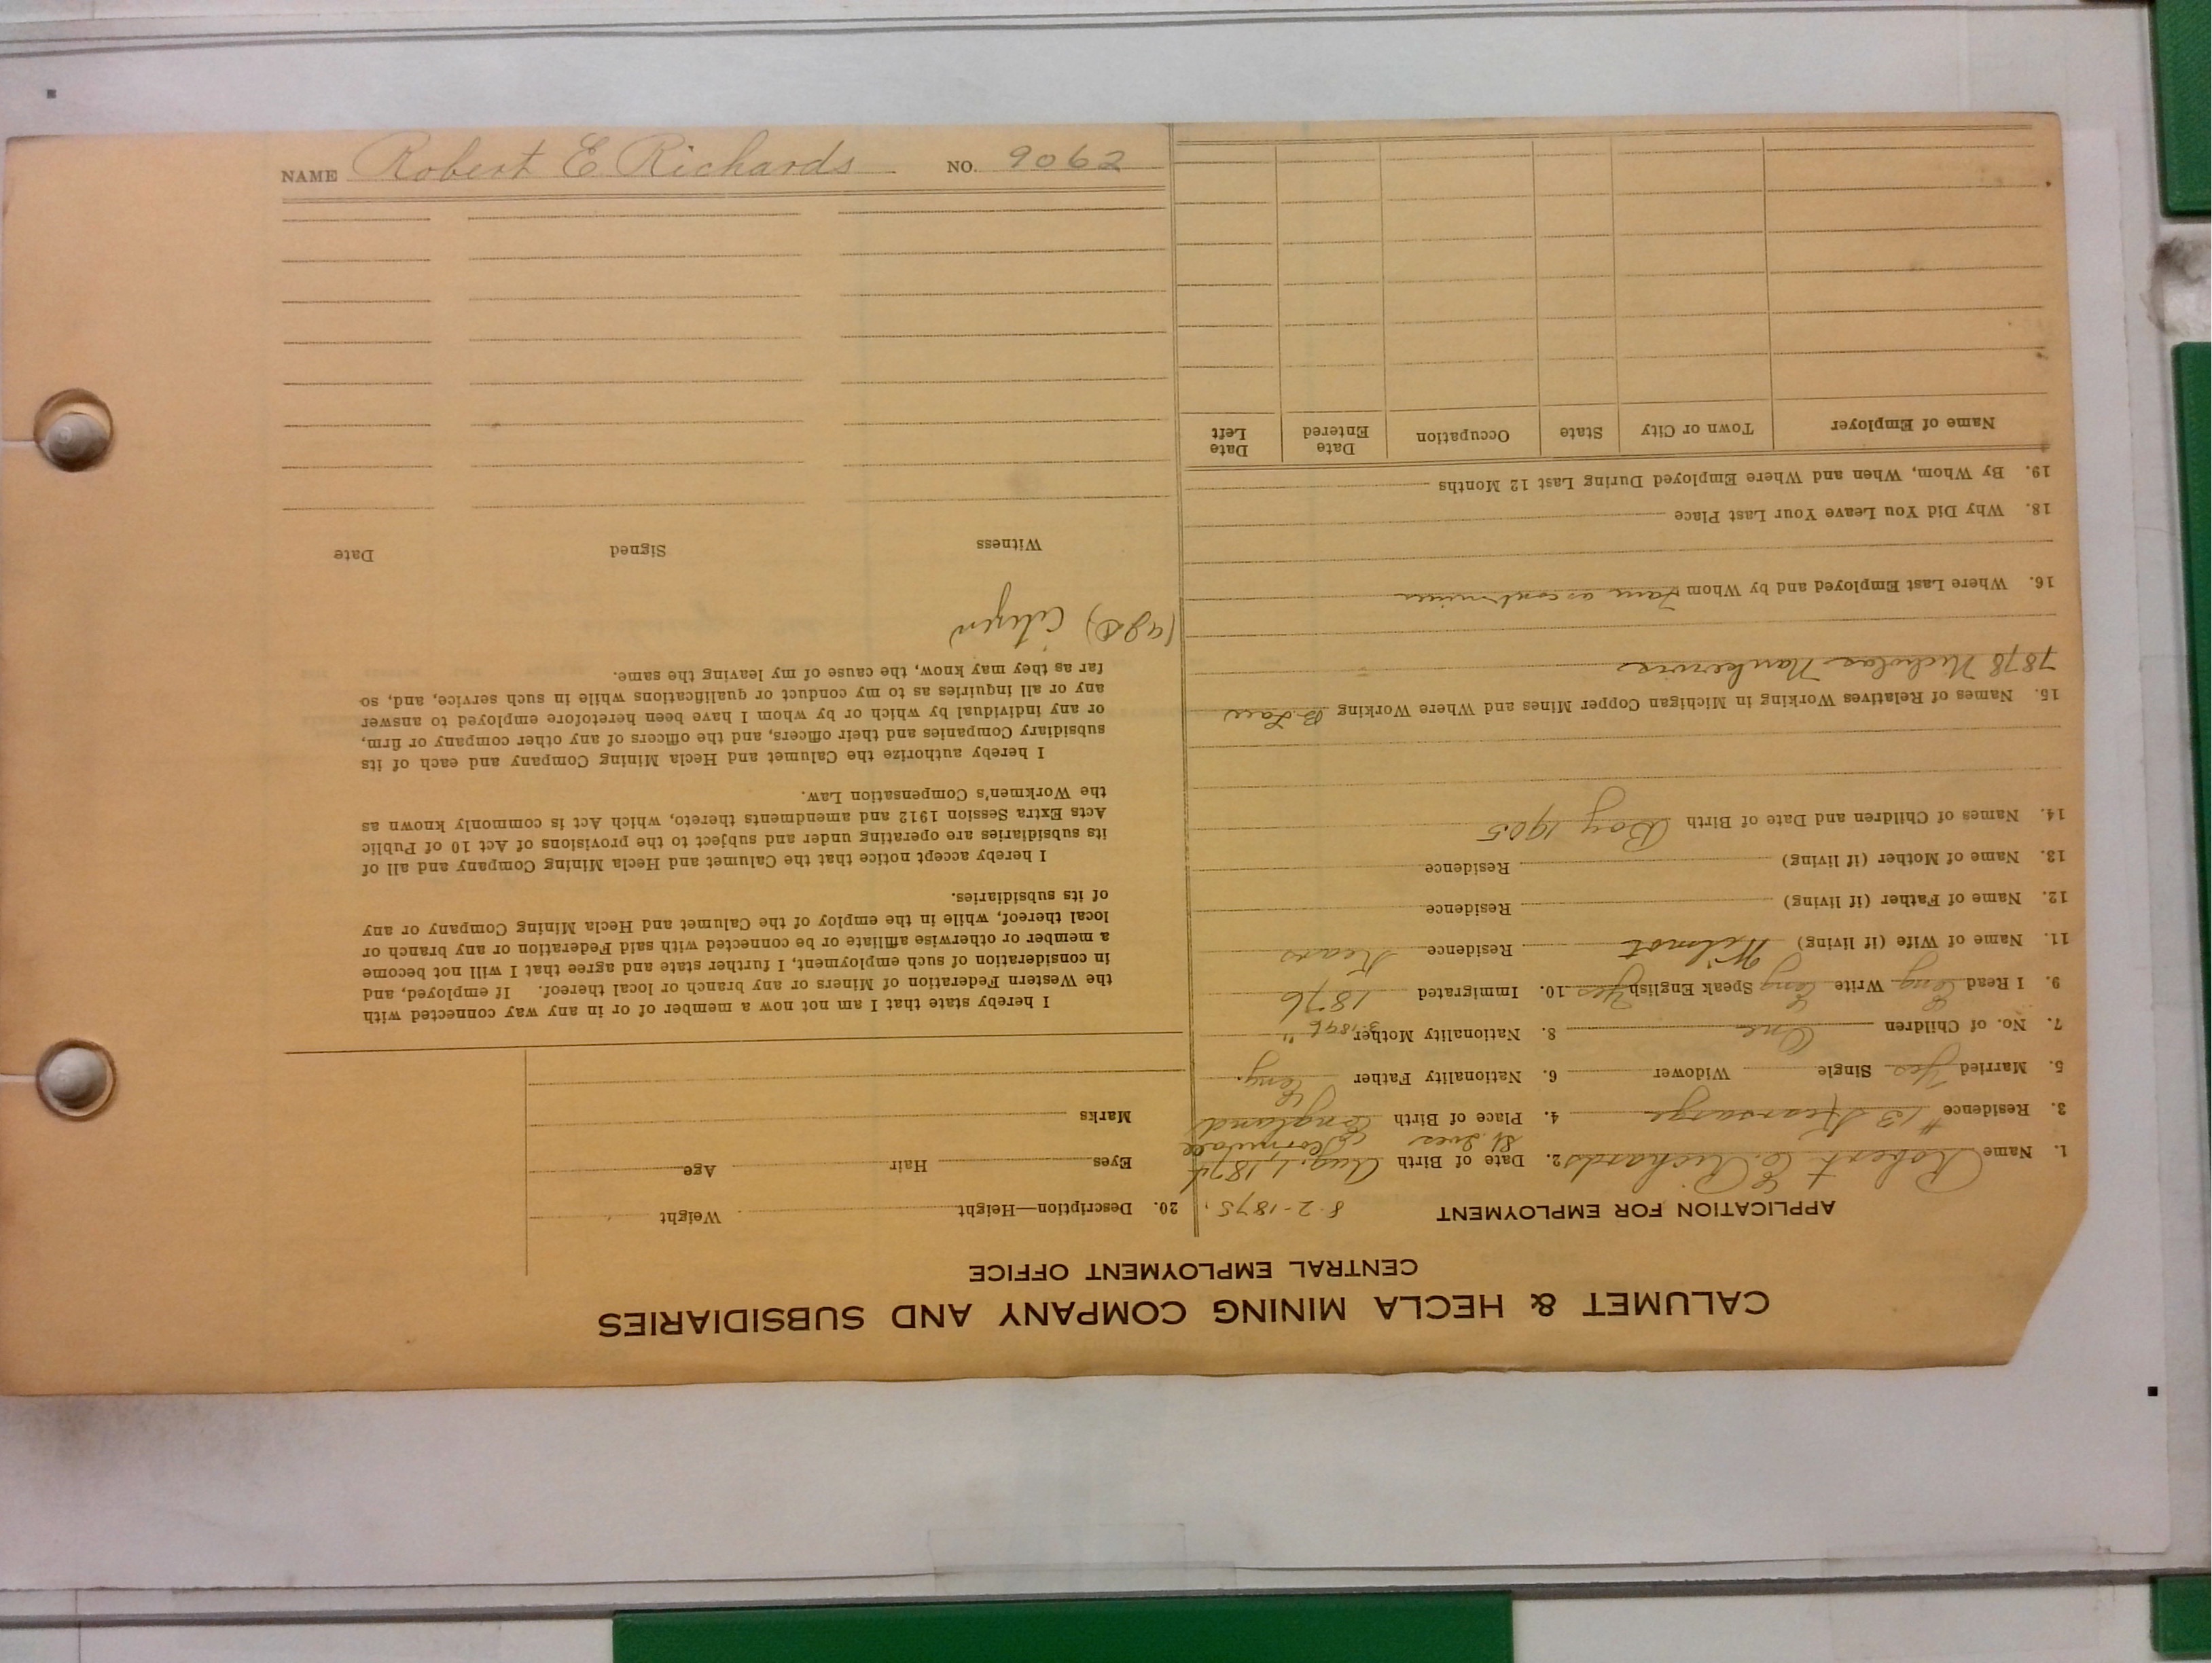 NAME Robert E. Richards NO. 9062
CALUMET & HECLA MINING COMPANY AND SUBSIDIARIES
CENTRAL EMPLOYMENT OFFICE
APPLICATION FOR EMPLOYMENT 8-2-1875.
1. Name Robert E. Richards 2. Date of Birth Aug. 1, 1874
St. Ives Cornwall
3. Residence #13 Kearsarge 4. Place of Birth England
5. Married Yes Single Widower 6. Nationality Father Eng.
7. No. of Children One 8. Nationality Mother "
9. I Read Eng Write Eng Speak English Yes 10. Immigrated 1876
11. Name of Wife (if living) Wilmot Residence Kears
12. Name of Father (if living) Residence
13. Name of Mother (if living) Residence
14. Names of Children and Date of Birth Boy 1905
15. Names of Relatives Working in Michigan Copper Mines and Where Working B-Law
7878 Nicholas Nankervis
16. Where Last Employed and by Whom
18. Why Did You Leave Your Last Place
19. By Whom, When and Where Employed During Last 12 Months
Name of Employer Town or City State Occupation Date Entered Date Left
20. Description—Height Weight
Eyes Hair Age
Marks
I hereby state that I am not now a member of or in any way connected with
the Western Federation of Miners or any branch or local thereof. If employed, and
in consideration of such employment, I further state and agree that I will not become
a member or otherwise affiliate or be connected with said Federation or any branch or
local thereof, while in the employ of the Calumet and Hecla Mining Company or any
of its subsidiaries.
I hereby accept notice that the Calumet and Hecla Mining Company and all of
its subsidiaries are operating under and subject to the provisions of Act 10 of Public
Acts Extra Session 1912 and amendments thereto, which Act is commonly known as
the Workmen's Compensation Law.
I hereby authorize the Calumet and Hecla Mining Company and each of its
subsidiary Companies and their officers, and the officers of any other company or firm,
or any individual by which or by whom I have been heretofore employed to answer
any or all inquiries as to my conduct or qualifications while in such service, and, so
far as they may know, the cause of my leaving the same.
Citizen
Witness Signed Date